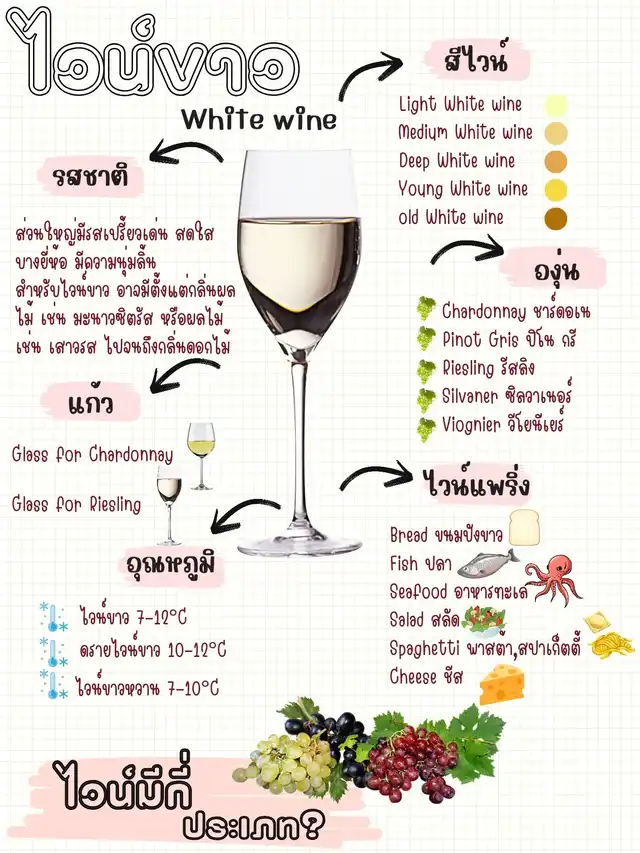 ไวน์ขาว
White wine
สีไวน์
Light White wine
Medium White wine
Deep White wine
Young White wine
old White wine
รสชาติ
ส่วนใหญ่มีรสเปรี้ยวเด่น สดใส
บางยี่ห้อ มีความนุ่มลิ้น
สำหรับไวน์ขาว อาจมีตั้งแต่กลิ่นผล
ไม้ เช่น มะนาวซิตรัส หรือผลไม้
เช่น เสาวรส ไปจนถึงกลิ่นดอกไม้
องุ่น
Chardonnay ชาร์ดอเน
Pinot Gris ปิโน กรี
Riesling รีสลิง
Silvaner ซิลวาเนอร์
Viognier วีโยนีเยร์
แก้ว
Glass for Chardonnay
Glass for Riesling
ไวน์แพริ่ง
Bread ขนมปังขาว
Fish ปลา
Seafood อาหารทะเล
Salad สลัด
Spaghetti พาสต้า,สปาเก็ตตี้
Cheese ชีส
อุณหภูมิ
ไวน์ขาว 7-12°C
ดรายไวน์ขาว 10-12°C
ไวน์ขาวหวาน 7-10°C
ไวน์มีกี่
ประเภท?